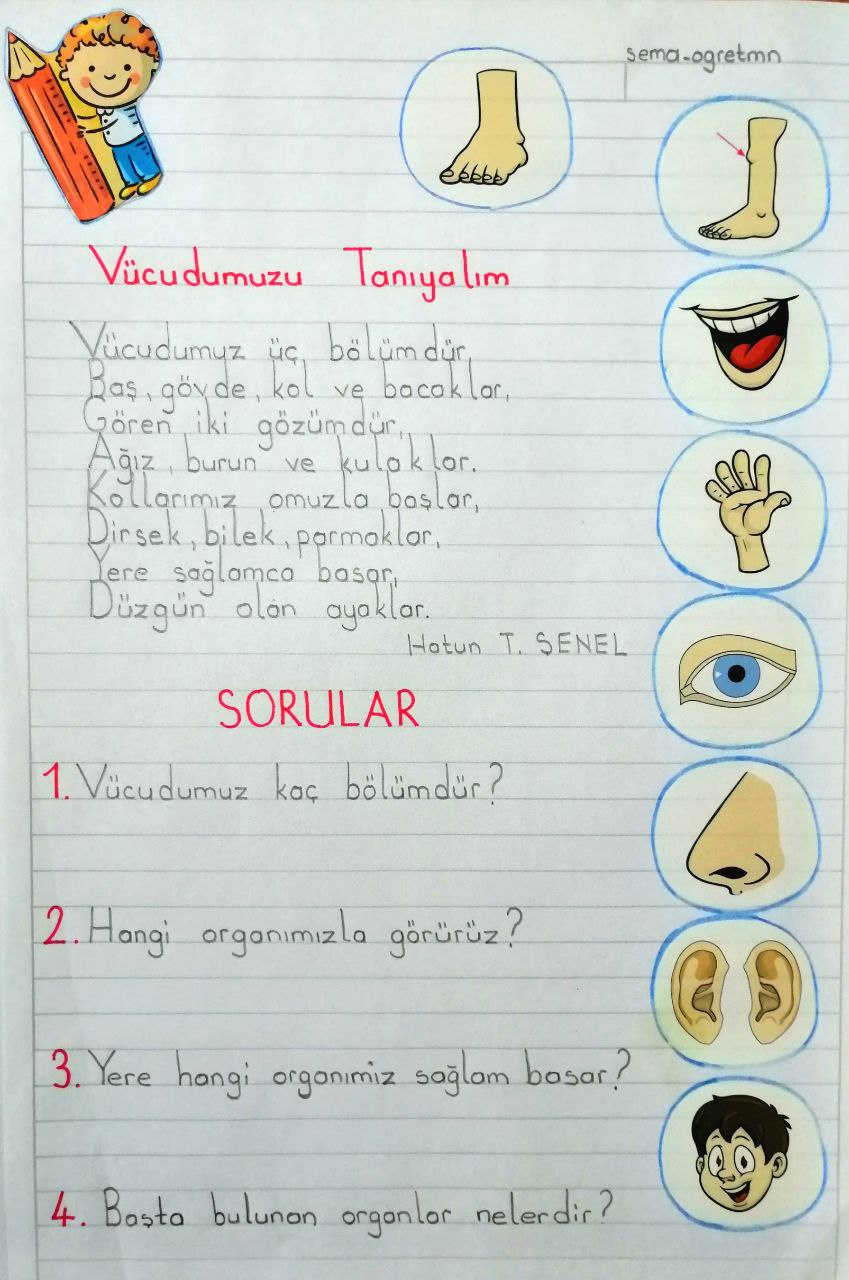 sema-ogretmn
Vücudumuzu Tanıyalım
Vücudumuz üç bölümdür,
Baş, gövde, kol ve bacaklar,
Gören iki gözümdür,
Ağız, burun ve kulaklar.
Kollarımız omuzla başlar,
Dirsek, bilek, parmaklar,
Yere sağlamca basar,
Düzgün olan ayaklar.
Hatun T. ŞENEL
SORULAR
1. Vücudumuz kaç bölümdür?
2. Hangi organımızla görürüz?
3. Yere hangi organımız sağlam basar?
4. Başta bulunan organlar nelerdir?